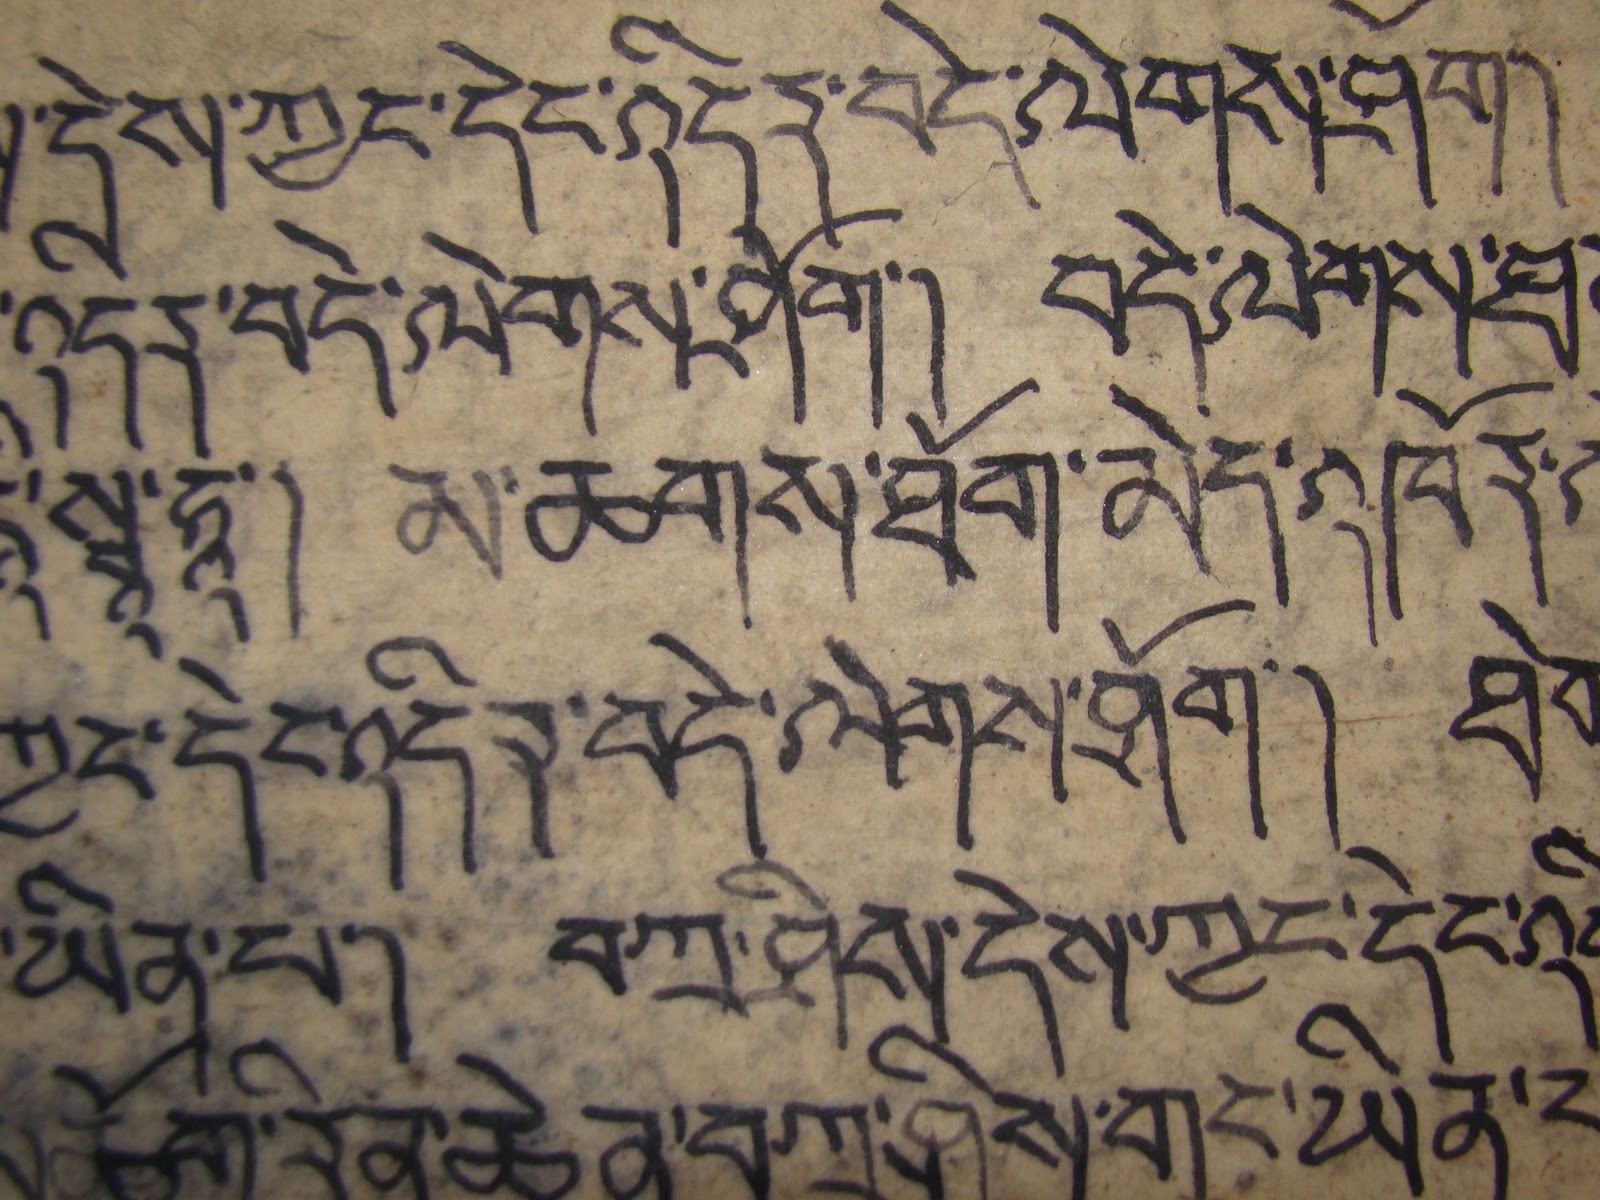 དེས་ཀྱང་དེང་འདིར་བདེ་ལེགས་ཤོག།
འདིར་བདེ་ལེགས་ཤོག། བདེ་ལེགས་
མ་ཆགས་ཐོག་མེད་འཁོར་
ཀྱང་དེང་འདིར་བདེ་ལེགས་ཤོག།
ཡིན་པ། བཀྲ་ཤིས་དེས་ཀྱང་དེང་
མཆོག་རིན་ཆེན་བཀྲ་ཤིས་གང་ཡིན་